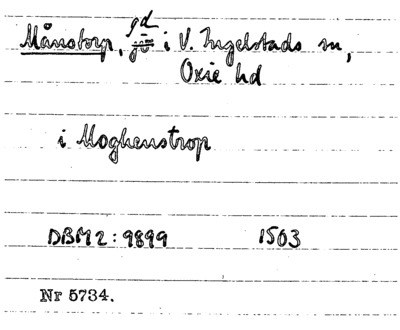 Månstorp, gd i V. Ingelstads sn,
Oxie hd
i Moghenstrop
DBM2:9899 1503
Nr 5734.